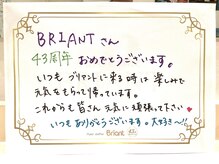 BRIANTさん
43周年 おめでとうございます。
いつもブリアントに来る時は楽しみで
元気をもらって帰っています。
これからも皆さん元気に頑張って下さい♥
いつもありがとうございます。大好き〜!!
Briant